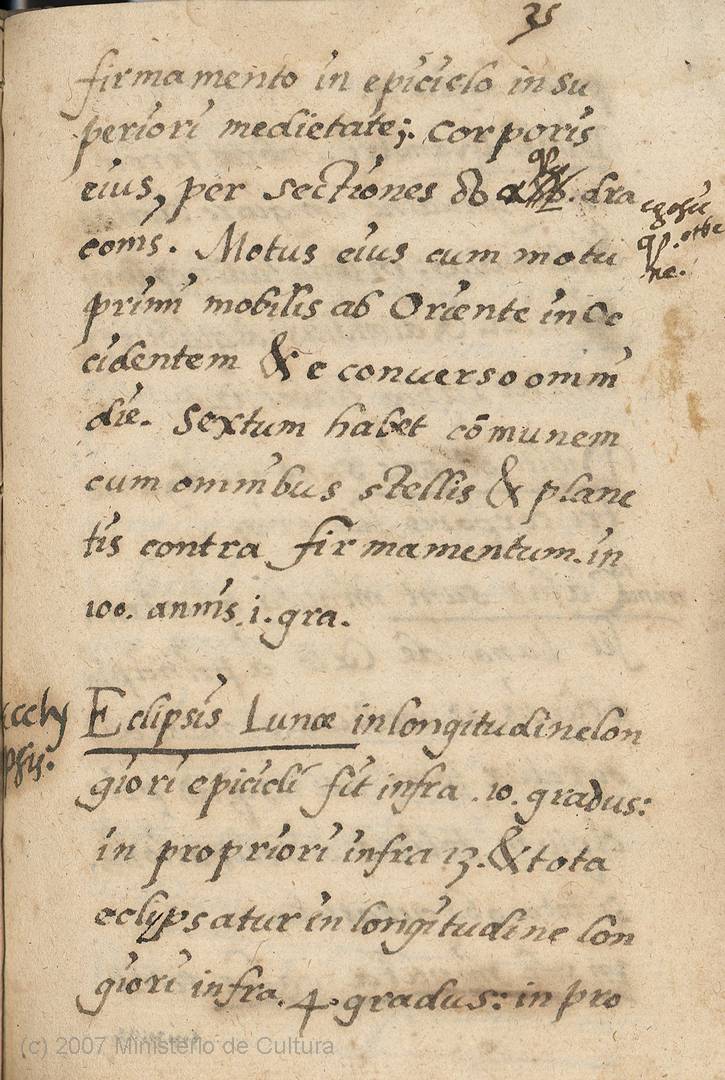 35
firmamento in epiciclo in su
periori medietate; corporis
eius, per sectiones do dra
coms. Motus eius cum motu
primi mobilis ab Oriente in Oc
cidentem & e conuerso omni
die. Sextum habet cōmunem
cum omnibus stellis & plane
tis contra firmamentum. in
100. annis. i. gra.
Eclipsis Lunæ in longitudine lon
giori epicicli fit infra .10. gradus:
in propriori infra 13. & tota
eclipsatur in longitudine lon
giori infra. 4. gradus: in pro
(c) 2007 Ministerio de Cultura